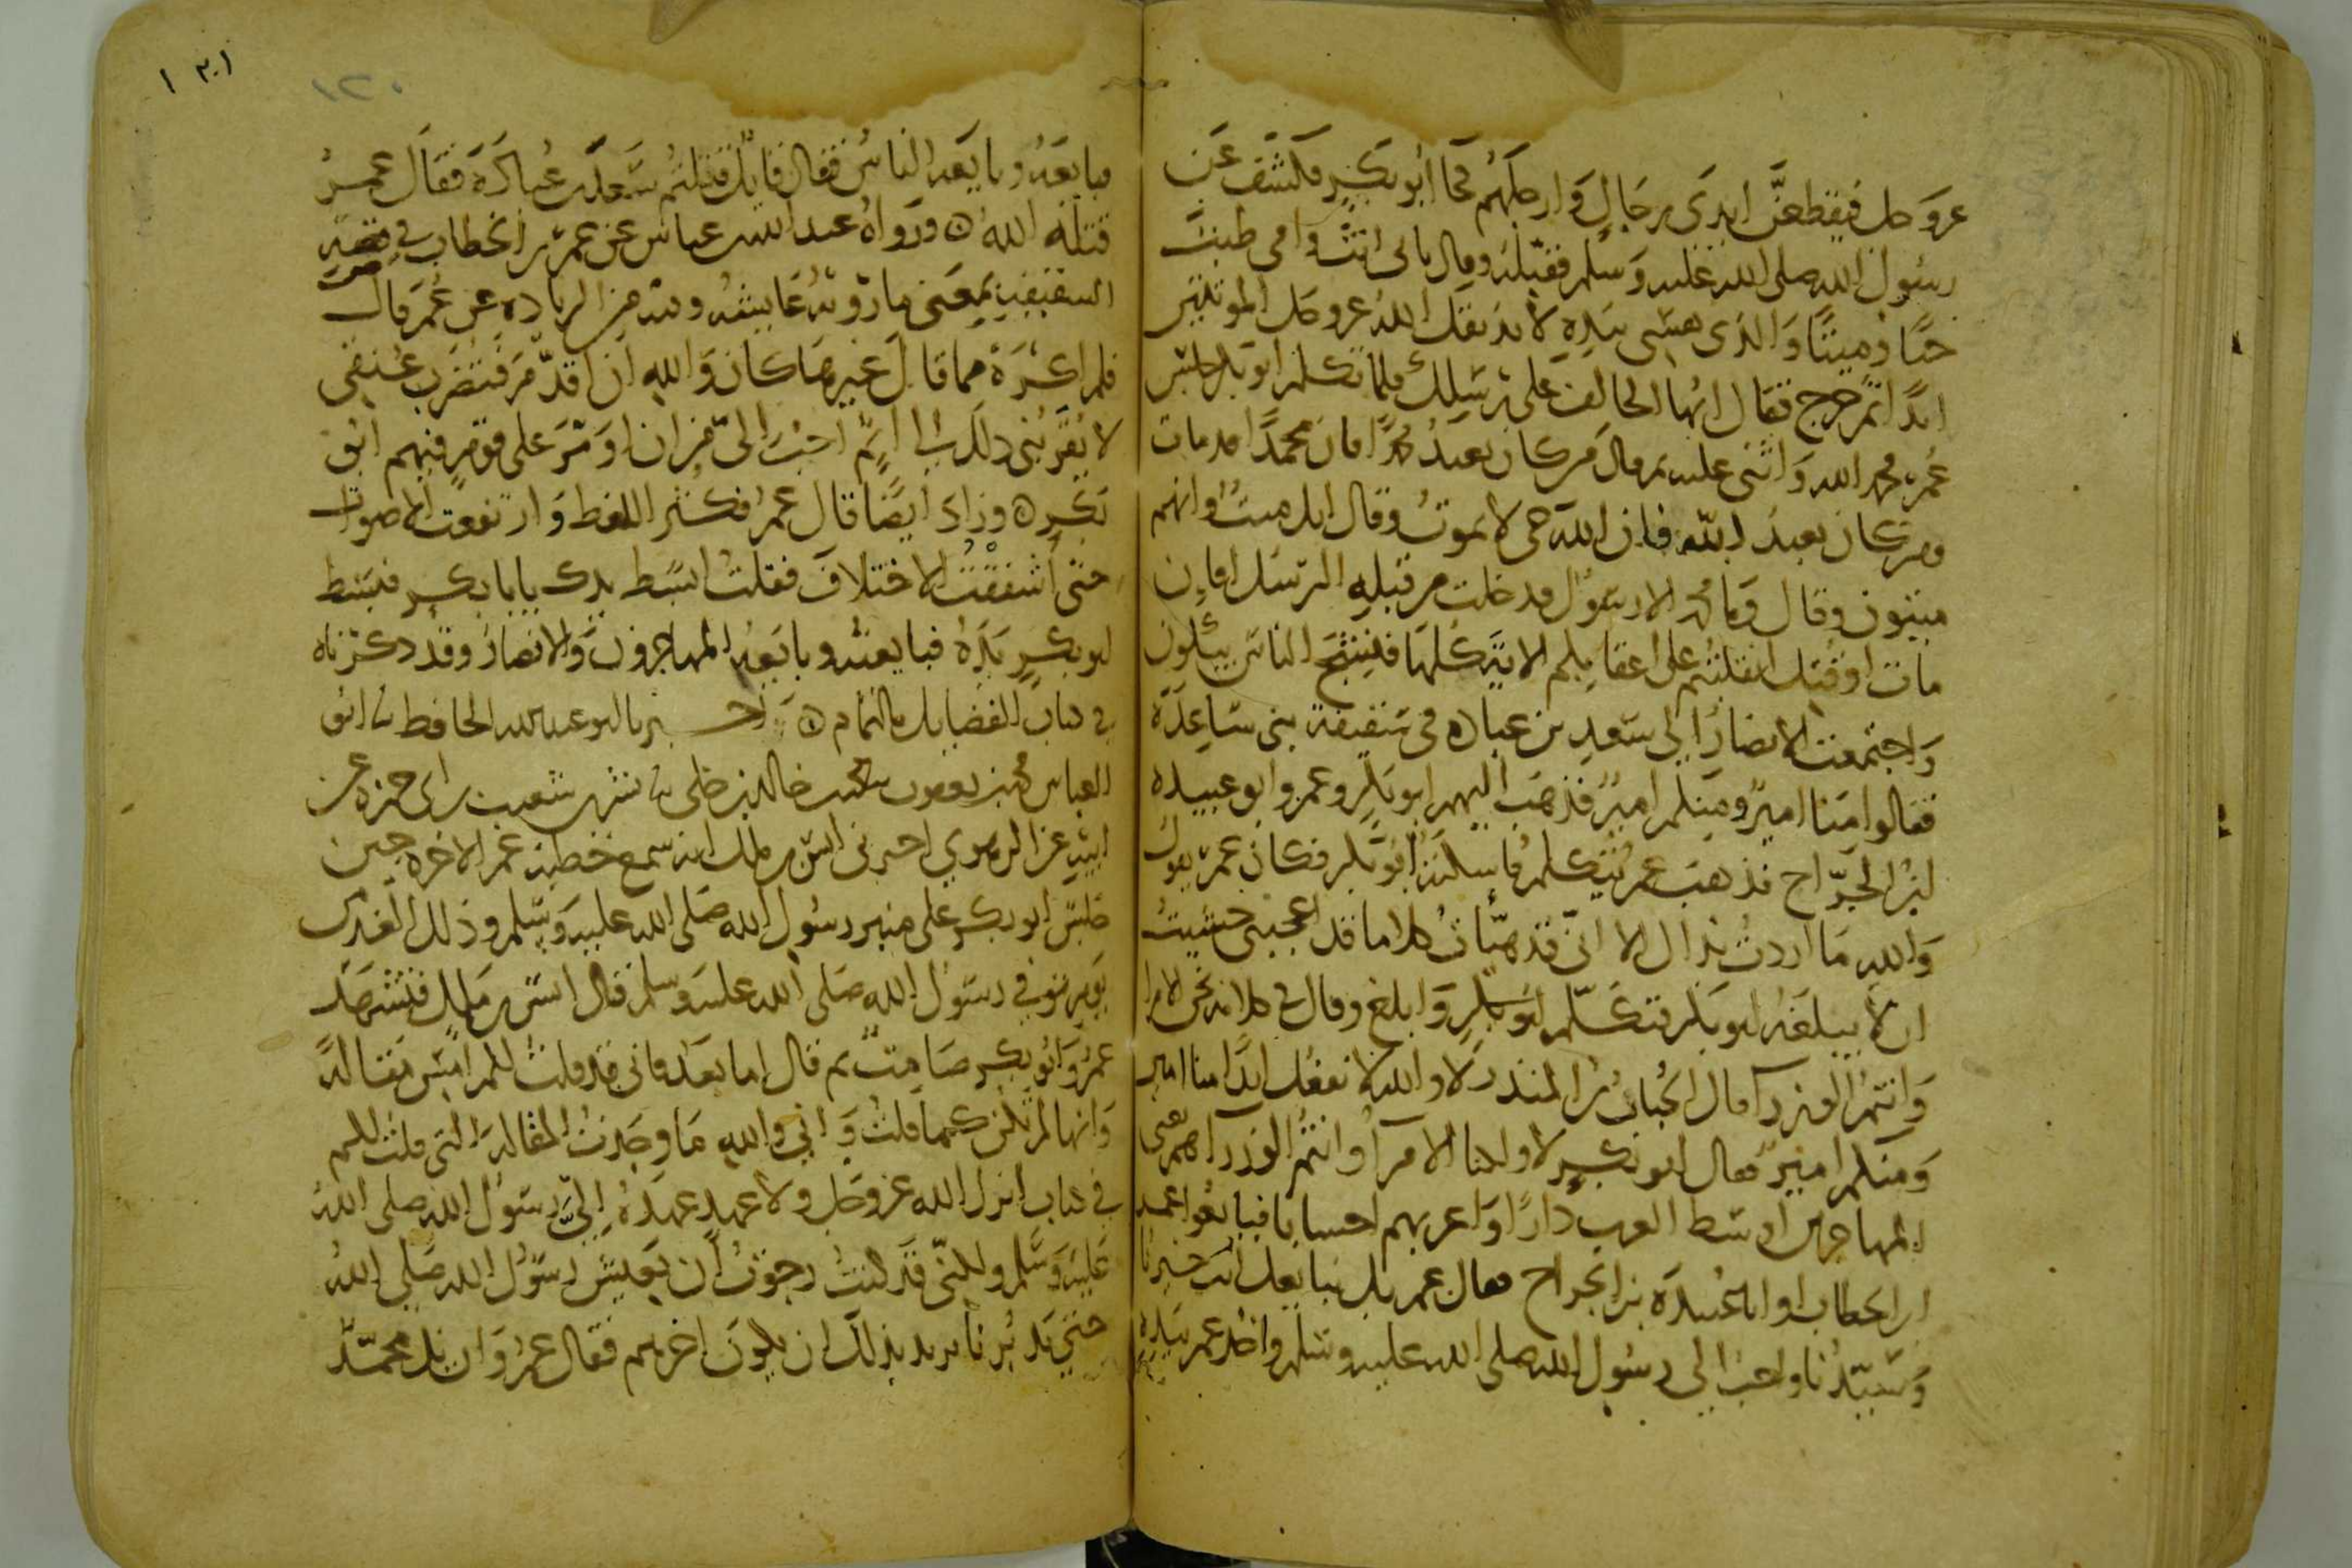 عز وجل فيقطعن ايدي رجال وارجلهم فجا ابو بكر فكشف عن
رسول الله صلى الله عليه وسلم فقبله وقال بابي انت وامي طبت
حيا وميتا والذي نفسي بيده لا يذيقك الله عز وجل الموتتين
ابدا ثم خرج فقال ايها الحالف على رسلك فلما تكلم ابو بكر جلس
عمر فحمد الله واثنى عليه ثم قال من كان يعبد محمدا فان محمدا قد مات
ومن كان يعبد الله فان الله حي لا يموت وقال انك ميت وانهم
ميتون وقال وما محمد الا رسول قد خلت من قبله الرسل افاين
مات او قتل انقلبتم على اعقابكم الاية كلها فنشج الناس يبكون
واجتمعت الانصار الى سعد بن عباده في سقيفة بني ساعدة
فقالوا منا امير ومنكم امير فذهب اليهم ابو بكر وعمر وابو عبيدة
ابن الجراح فذهب عمر يتكلم فاسكته ابو بكر فكان عمر يقول
والله ما اردت بذاك الا اني قد هيأت كلاما قد اعجبني خشيت
ان لا يبلغه ابو بكر فتكلم ابو بكر وابلغ وقال في كلامه نحن الامرا
وانتم الوزرا قال الحباب بن المنذر لا والله لا نفعل ابدا منا امير
ومنكم امير فقال ابو بكر لا ولكنا الامرآ وانتم الوزرآ هم يعني
المهاجرين اوسط العرب دارا واعربهم احسابا فبايعوا عمر
ابن الخطاب او ابا عبيدة بن الجراح فقال عمر بل نبايعك انت خيرنا
وسيدنا واحبنا الى رسول الله صلى الله عليه وسلم واخذ عمر بيده
١٢٠
١٢٠١
فبايعه وبايعه الناس فقال قايل قتلتم سعد بن عبادة فقال عمر
قتله الله ه ورواه عبد الله بن عباس عن عمر بن الخطاب في قصة
السقيفة بمعنى ما روته عايشة وفيه من الزيادة عن عمر قال
فلم اكره مما قال غيرها كان والله ان اقدم فتضرب عنقي
لا يقربني ذلك الى اثم احب الي من ان اومر على قوم فيهم ابو
بكر ه وزاد ايضا قال عمر فكثر اللغط وارتفعت الاصوات
حتى اشفقت الاختلاف فقلت ابسط يدك يابا بكر فبسط
ابو بكر يده فبايعته وبايعه المهاجرون والانصار وقد ذكرناه
في كتاب الفضايل بالتمام ه اخبرنا ابو عبد الله الحافظ نا ابو
العباس محمد بن يعقوب نا محمد بن خالد بن خلي نا بشر بن شعيب بن ابي حمزة عن
ابيه عن الزهري اخبرني انس بن مالك انه سمع خطبة عمر الاخرة حين
جلس ابو بكر على منبر رسول الله صلى الله عليه وسلم وذلك الغد من
يوم توفي رسول الله صلى الله عليه وسلم قال انس بن مالك فتشهد
عمر وابو بكر صامت ثم قال اما بعد فاني قد قلت لكم امس مقالة
وانها لم تكن كما قلت واني والله ما وجدت المقالة التي قلت لكم
في كتاب انزل الله عز وجل ولا عهد عهده الي رسول الله صلى الله
عليه وسلم ولكني قد كنت رجوت ان يعيش رسول الله صلى الله
حتى يدبرنا يريد بذلك ان يكون اخرهم فقال عمر وان يك محمد